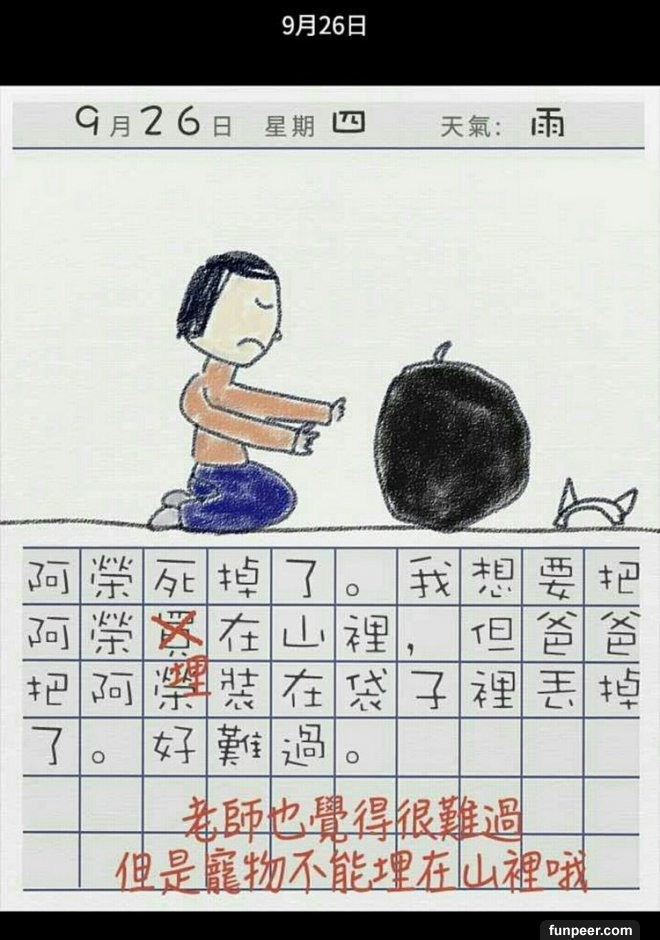 9月26日
9月26日 星期四 天氣: 雨
阿榮死掉了。我想要把
阿榮買在山裡，但爸爸
埋
把阿榮裝在袋子裡丟掉
了。好難過。
老師也覺得很難過
但是寵物不能埋在山裡哦
funpeer.com